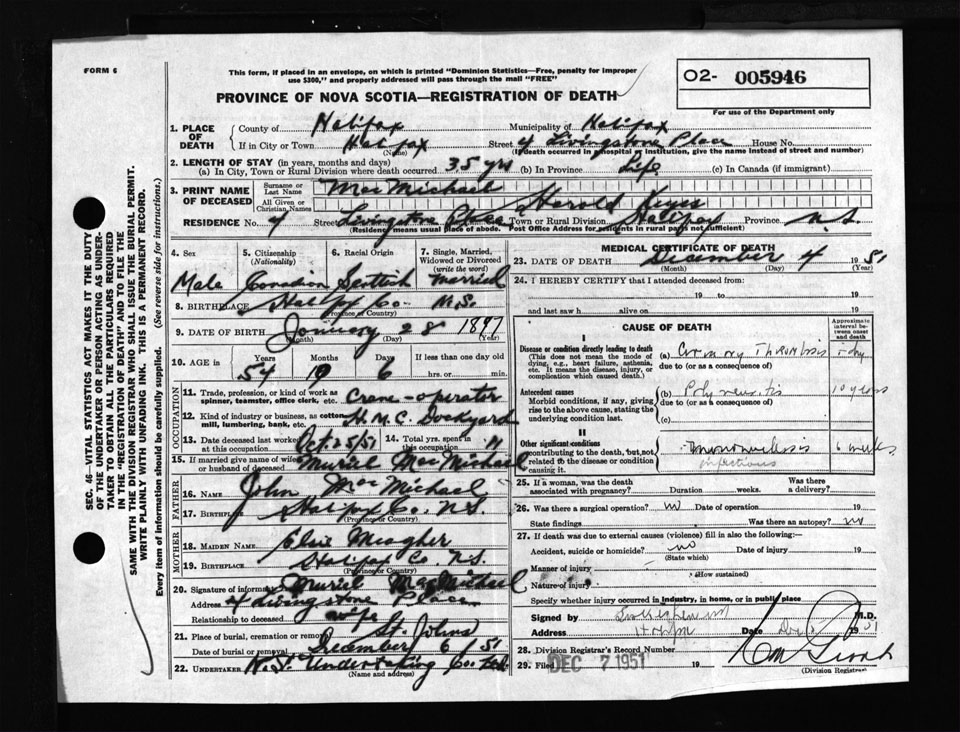 FORM 6
This form, if placed in an envelope, on which is printed "Dominion Statistics—Free, penalty for improper
use $300," and properly addressed will pass through the mail "FREE"
O2- 005946
PROVINCE OF NOVA SCOTIA—REGISTRATION OF DEATH
For use of the Department only
1. PLACE OF DEATH County of Halifax Municipality of Halifax
If in City or Town Halifax Street 4 Livingstone Place House No.
(Name) (If death occurred in a hospital or institution, give the name instead of street and number)
2. LENGTH OF STAY (in years, months and days)
(a) In City, Town or Rural Division where death occurred 35 yrs (b) In Province Life (c) In Canada (if immigrant)
3. PRINT NAME OF DECEASED Surname or Last Name Mac Michael
All Given or Christian Names Harold Keyes
RESIDENCE No. 4 Street Livingstone Place Town or Rural Division Halifax Province N.S.
(Residence means usual place of abode. Post Office Address for residents in rural parts not sufficient)
4. Sex 5. Citizenship (Nationality) 6. Racial Origin 7. Single, Married, Widowed or Divorced (write the word)
Male Canadian Scottish Married
8. BIRTHPLACE Halifax Co. N.S.
9. DATE OF BIRTH January 28 1897
(Month) (Day) (Year)
10. AGE in Years Months Days If less than one day old
54 10 6 hrs. or min.
OCCUPATION
11. Trade, profession, or kind of work as spinner, teamster, office clerk, etc. Crane-operator
12. Kind of industry or business, as cotton mill, lumbering, bank, etc. H.M.C. Dockyard
13. Date deceased last worked at this occupation Oct. 25/51 14. Total yrs. spent in this occupation 11
15. If married give name of wife or husband of deceased Muriel MacMichael
FATHER
16. NAME John MacMichael
17. BIRTHPLACE Halifax Co. N.S.
(Province or Country)
MOTHER
18. MAIDEN NAME Elsie Meagher
19. BIRTHPLACE Halifax Co N.S.
(Province or Country)
20. Signature of informant Muriel MacMichael
Address 4 Livingstone Place
Relationship to deceased wife
21. Place of burial, cremation or removal St. Johns
Date of burial or removal December 6 51
22. UNDERTAKER N.S. Undertaking Co. Ltd.
(Name and address)
MEDICAL CERTIFICATE OF DEATH
23. DATE OF DEATH December 4 1951
(Month) (Day) (Year)
24. I HEREBY CERTIFY that I attended deceased from:
19 to 19
and last saw h alive on 19
CAUSE OF DEATH
Approximate interval between onset and death
I
Disease or condition directly leading to death
(This does not mean the mode of dying, e.g., heart failure, asthenia, etc. It means the disease, injury, or complication which caused death.)
(a) Coronary Thrombosis
due to (or as a consequence of)
Antecedent causes
Morbid conditions, if any, giving rise to the above cause, stating the underlying condition last.
(b) 10 years
due to (or as a consequence of)
(c)
II
Other significant conditions
contributing to the death, but not related to the disease or condition causing it.
mononucleosis infectious 6 weeks
25. If a woman, was the death associated with pregnancy? Duration weeks. Was there a delivery?
26. Was there a surgical operation? no Date of operation 19
State findings Was there an autopsy? no
27. If death was due to external causes (violence) fill in also the following:
Accident, suicide or homicide? no Date of injury 19
(State which)
Manner of injury
(How sustained)
Nature of injury
Specify whether injury occurred in industry, in home, or in public place
Signed by M.D.
Address Date 1951
28. Division Registrar's Record Number
29. Filed DEC 7 1951 19
(Division Registrar)
SEC. 46—VITAL STATISTICS ACT MAKES IT THE DUTY
OF THE UNDERTAKER OR PERSON ACTING AS UNDER-
TAKER TO OBTAIN ALL THE PARTICULARS REQUIRED
IN THE "REGISTRATION OF DEATH" AND TO FILE THE
SAME WITH THE DIVISION REGISTRAR WHO SHALL ISSUE THE BURIAL PERMIT.
WRITE PLAINLY WITH UNFADING INK. THIS IS A PERMANENT RECORD.
Every item of information should be carefully supplied. (See reverse side for instructions.)